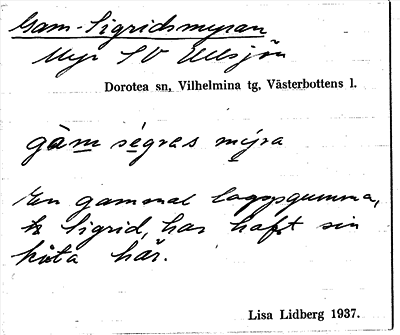 Gam-Sigridsmyran
Myr SV Ullsjön
Dorotea sn, Vilhelmina tg, Västerbottens l.
gàmségras mýra
En gammal lappgumma,
Sigrid, har haft sin
kåta här.
Lisa Lidberg 1937.